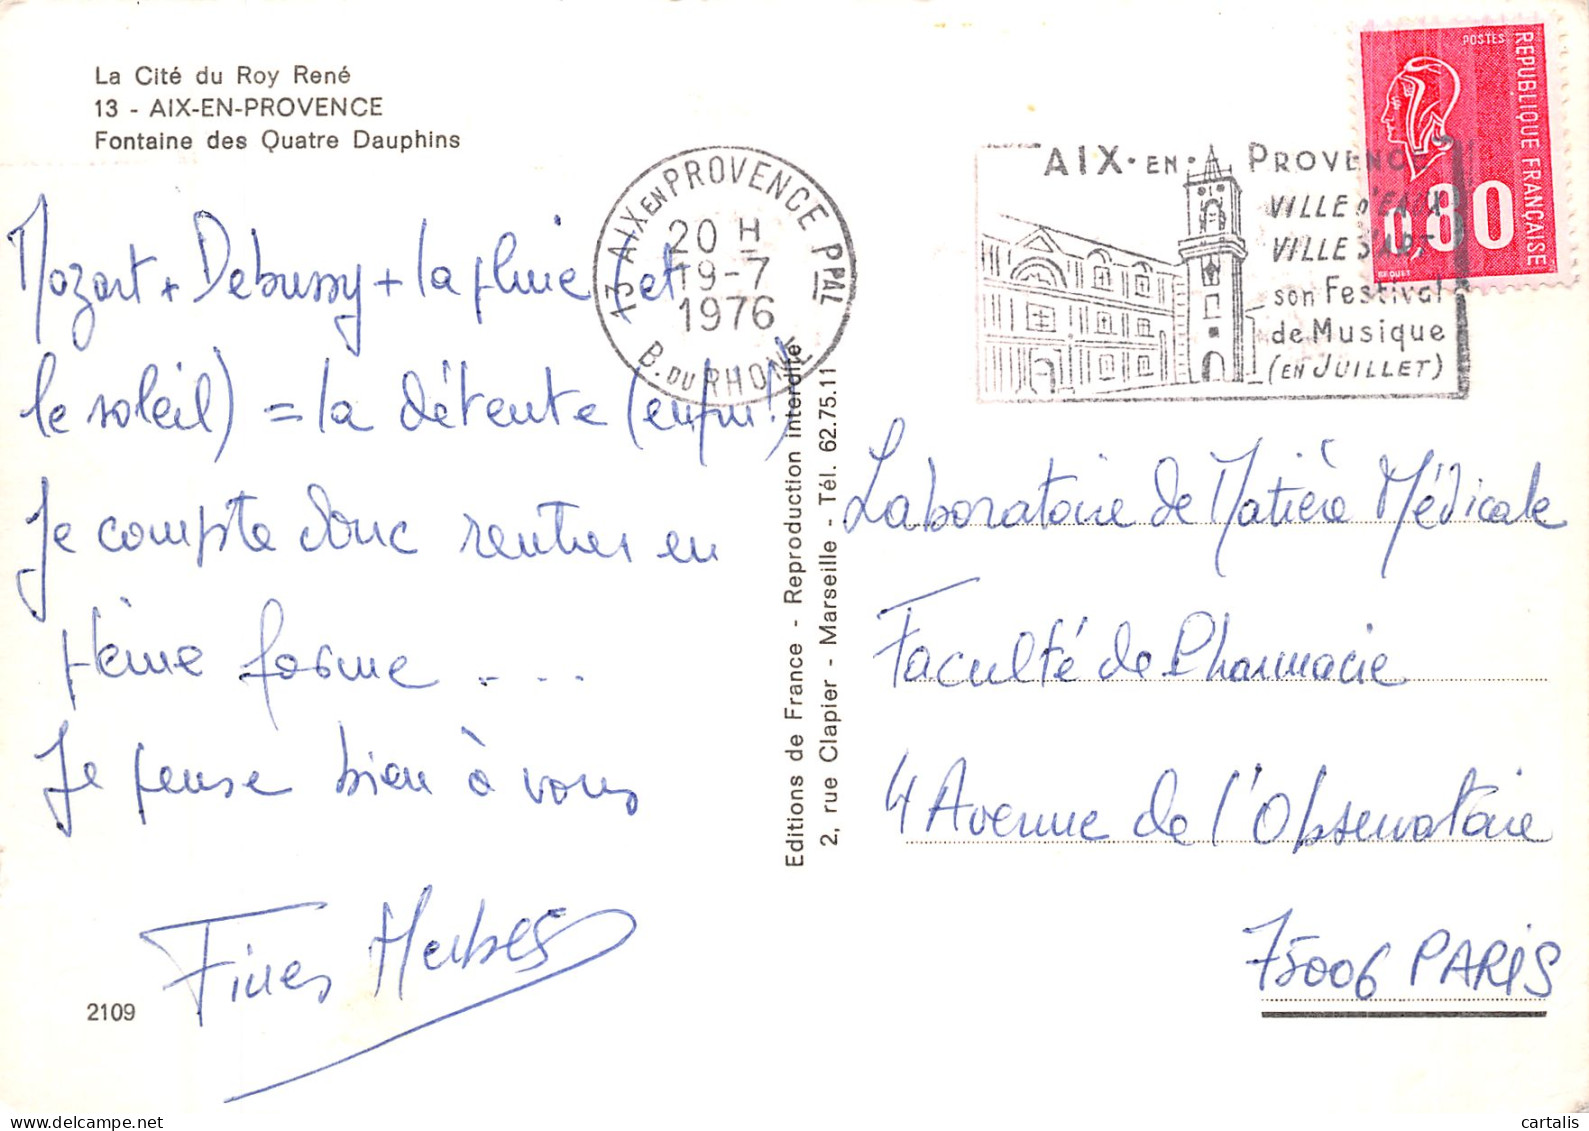 La Cité du Roy René
13 - AIX-EN-PROVENCE
Fontaine des Quatre Dauphins
Mozart + Debussy + la pluie (et
le soleil) = la détente (enfin!)
Je compte donc rentrer en
pleine forme ....
Je pense bien à vous
Fines Herbes
2109
13 AIX EN PROVENCE PPAL
20 H
19-7
1976
B. DU RHONE
Editions de France - Reproduction interdite
2, rue Clapier - Marseille - Tél. 62.75.11
AIX-EN-PROVENCE
VILLE D'EAUX
VILLE D'ART
son Festival
de Musique
(EN JUILLET)
POSTES
REPUBLIQUE FRANÇAISE
0,80
BEQUET
Laboratoire de Matière Médicale
Faculté de Pharmacie
4 Avenue de l'Observatoire
75006 PARIS
cartalis
www.delcampe.net